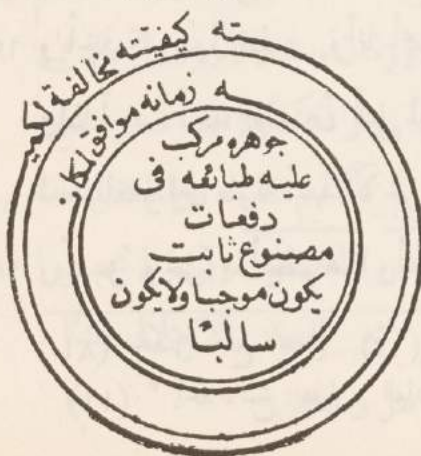 كيفيته مخالفة لكميته
زمانه موافق لمكانه
جوهره مركب
عليه طبائعه في
دفعات
مصنوع ثابت
يكون موجبا ولا يكون
سالبًا